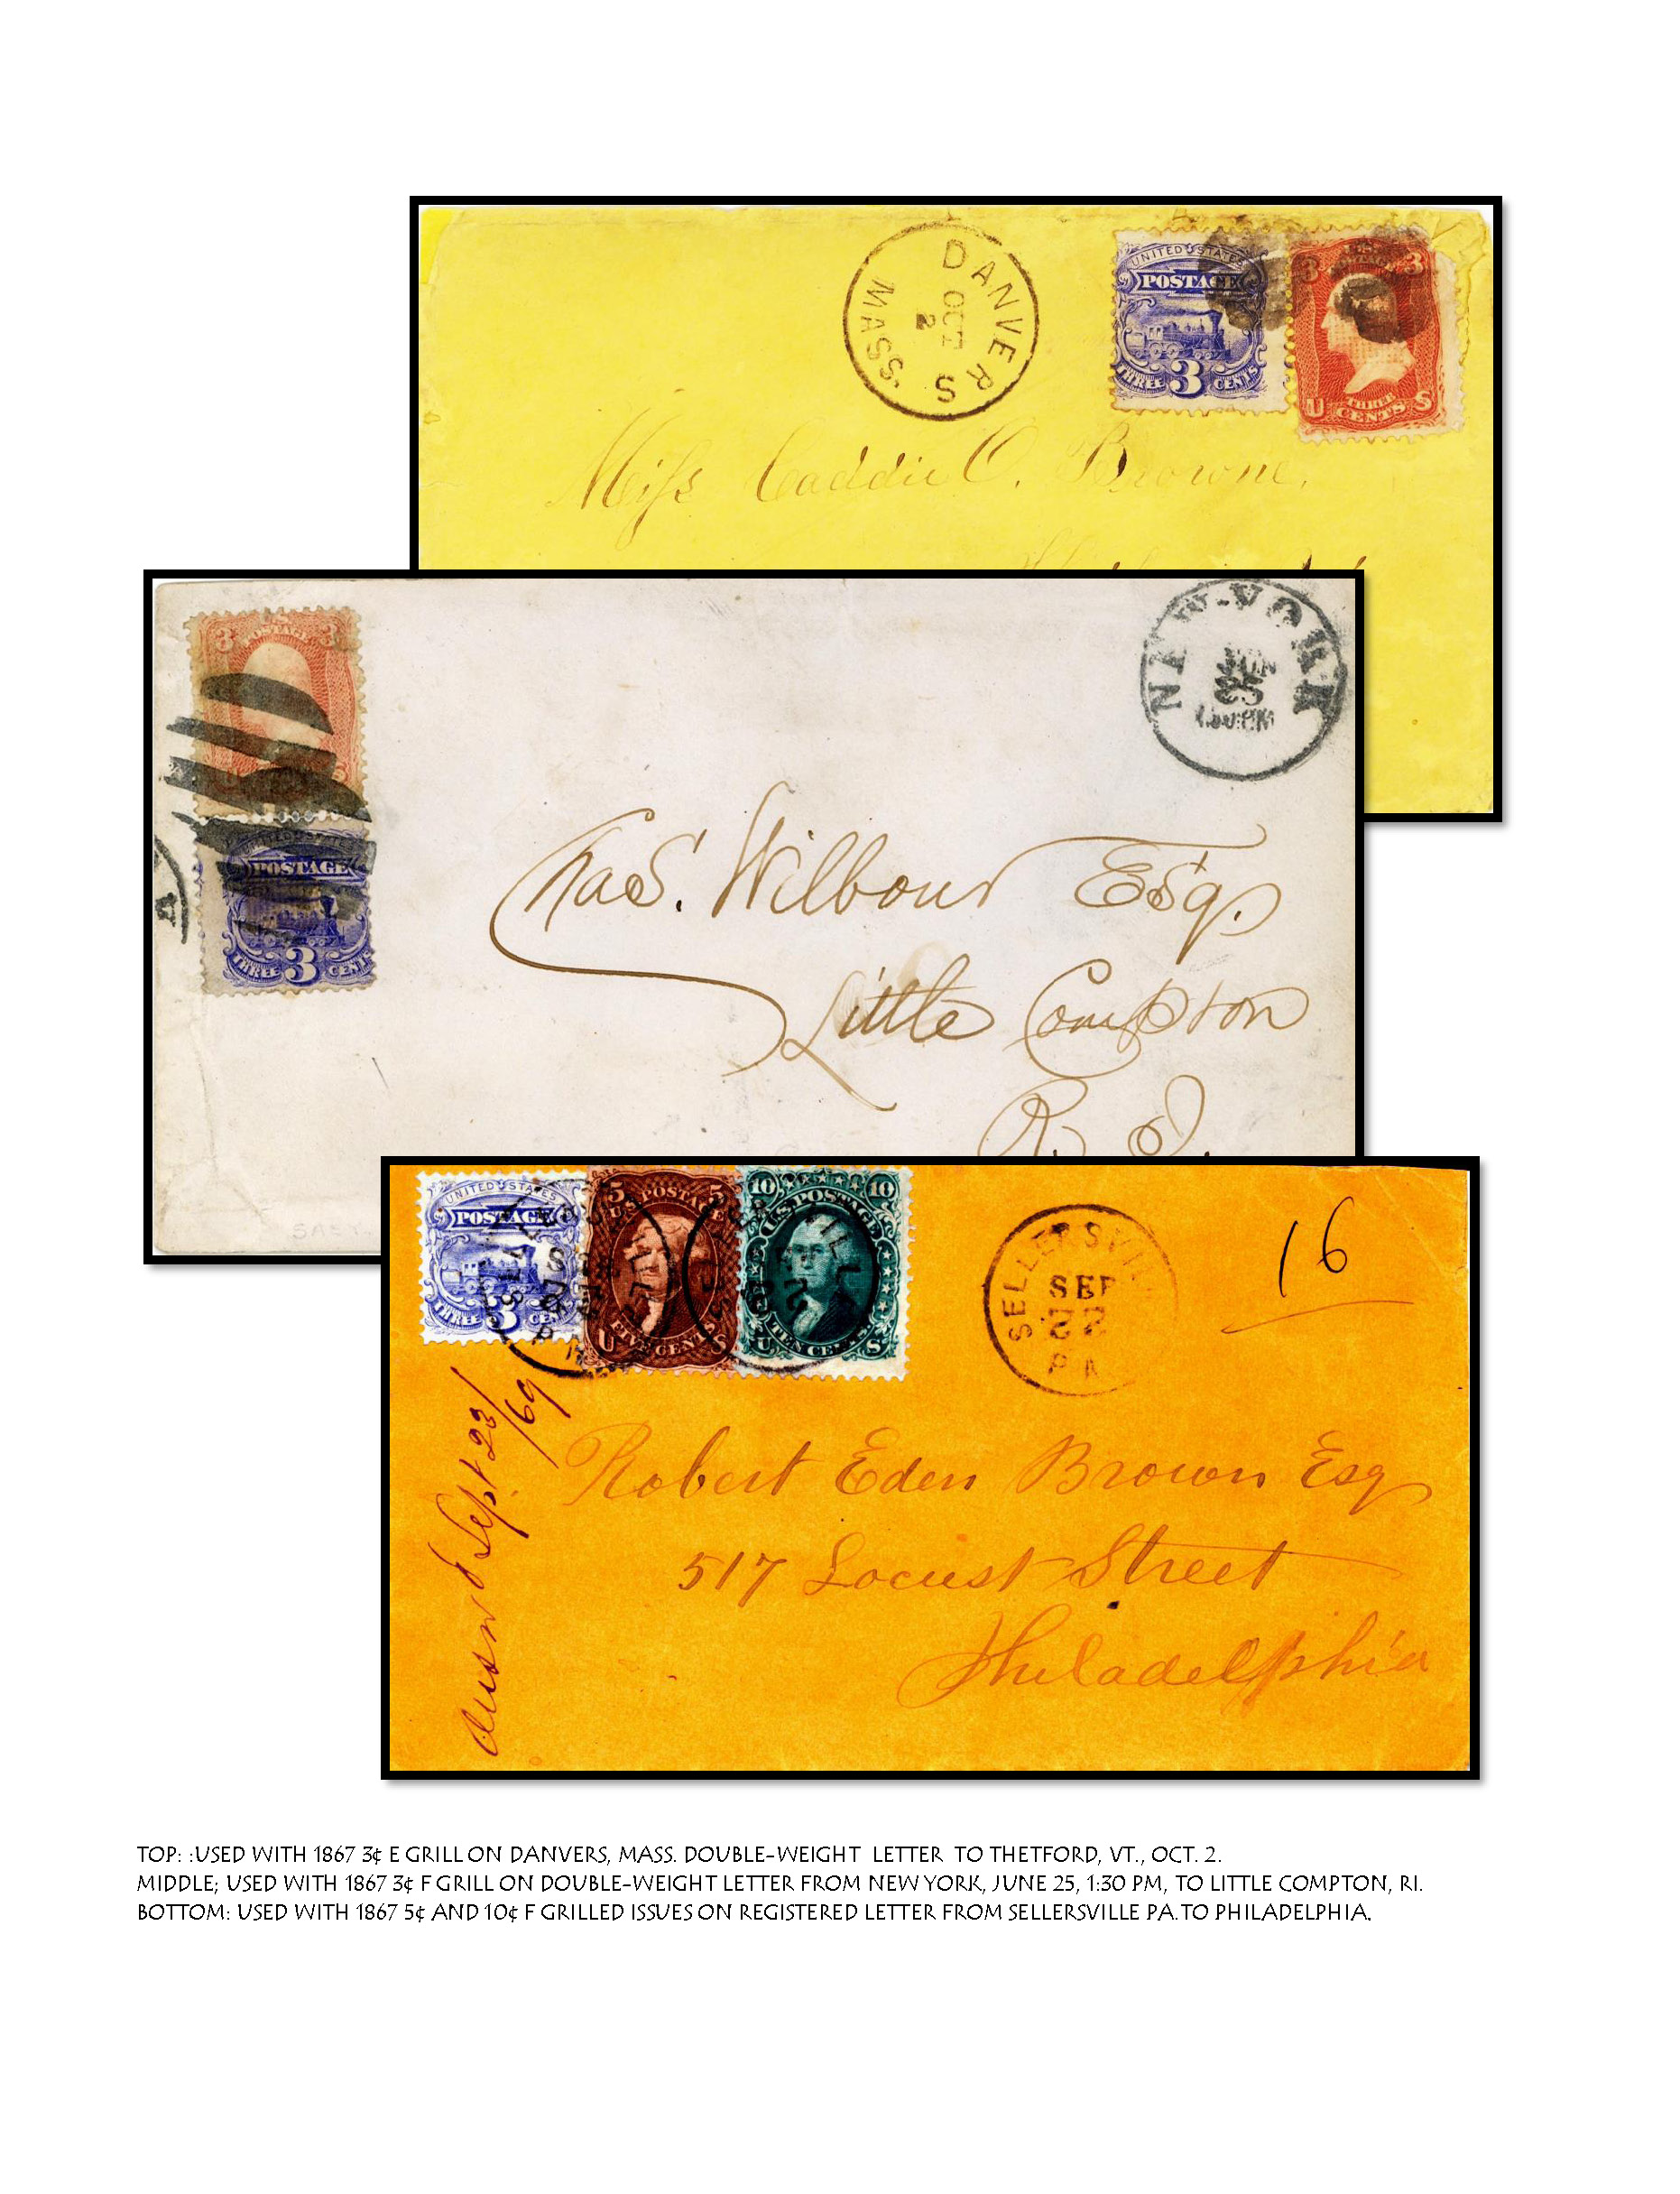 DANVERS
OCT
2
MASS.
UNITED STATES
POSTAGE
THREE 3 CENTS
3 3
POSTAGE
U THREE S
CENTS
Miss Caddie O. Browne,
NEW-YORK
JUN
25
1.30.PM
3 U.S. 3
POSTAGE
UNITED STATES
POSTAGE
THREE 3 CENTS
A
Chas. Wilbour Esq.
Little Compton
R. I.
UNITED STATES
POSTAGE
THREE 3 CENTS
5 POSTAGE 5
U.S.
U FIVE CENTS S
10 10
U.S. POSTAGE
U TEN CENTS S
SELLERSVILLE
SEP
22
PA
16
Sept 23/69
Robert Eden Brown Esq
517 Locust Street
Philadelphia
TOP: :USED WITH 1867 3¢ E GRILL ON DANVERS, MASS. DOUBLE-WEIGHT LETTER TO THETFORD, VT., OCT. 2.
MIDDLE; USED WITH 1867 3¢ F GRILL ON DOUBLE-WEIGHT LETTER FROM NEW YORK, JUNE 25, 1:30 PM, TO LITTLE COMPTON, RI.
BOTTOM: USED WITH 1867 5¢ AND 10¢ F GRILLED ISSUES ON REGISTERED LETTER FROM SELLERSVILLE PA.TO PHILADELPHIA.